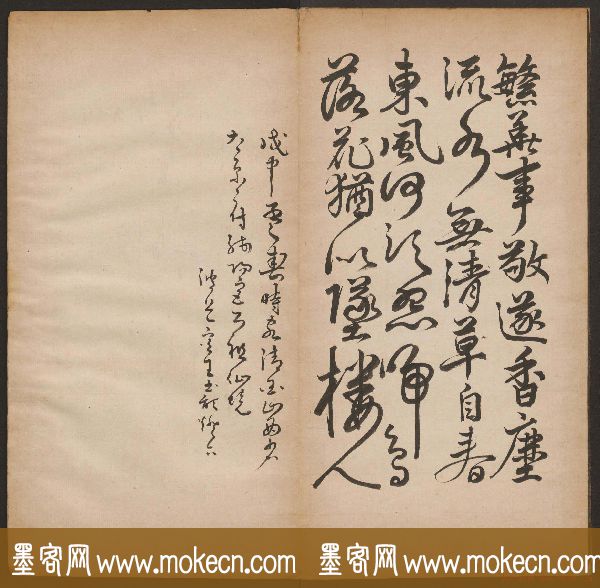 繁華事散逐香塵
流水無清草自春
東風何須怨啼鳥
落花猶似墜樓人
戊申春時客清国山西省
太原府仙境
墨客网 www.mokecn.com 墨客网 www.mokecn.com